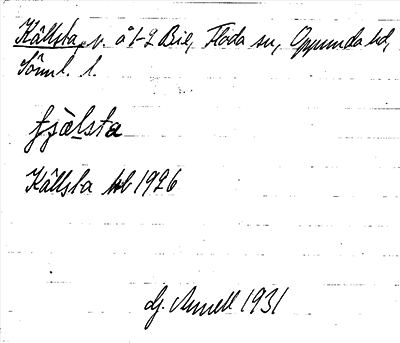 Källsta, v. å 1-2 Bie, Floda sn, Oppunda hd,
Sörml. l.
fjälsta
Källsta hbl 1926
Gj. Arnell 1931